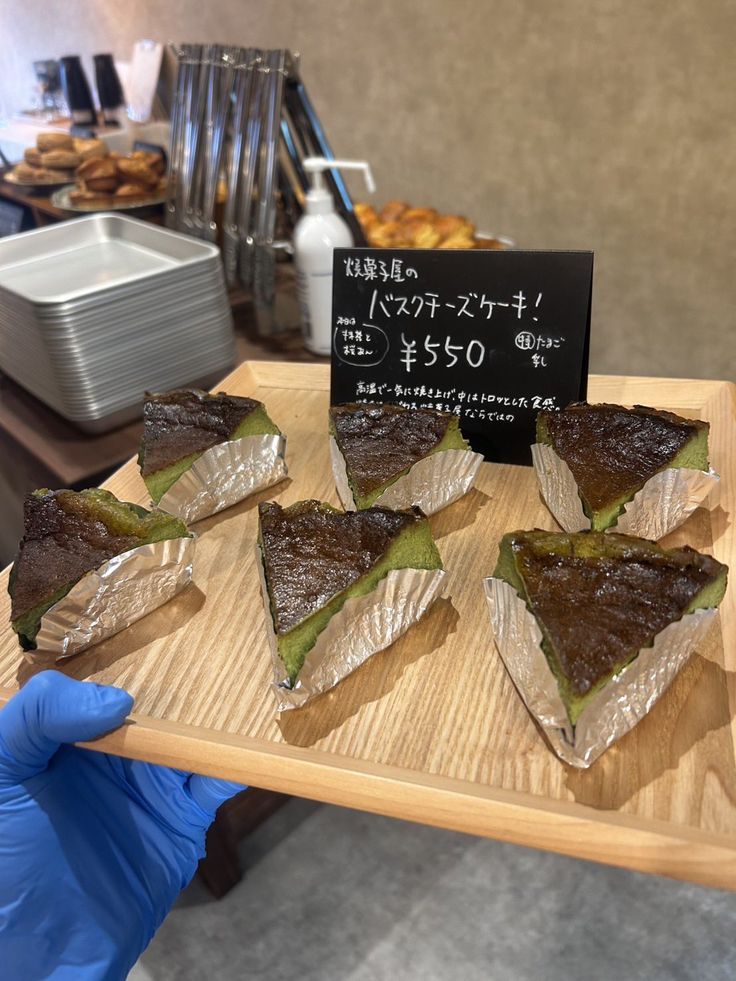 焼菓子屋の
バスクチーズケーキ!
本日は
抹茶と
桜あん
¥550
たまご
乳
高温で一気に焼き上げ、中はトロッとした食感
焼菓子屋ならではの